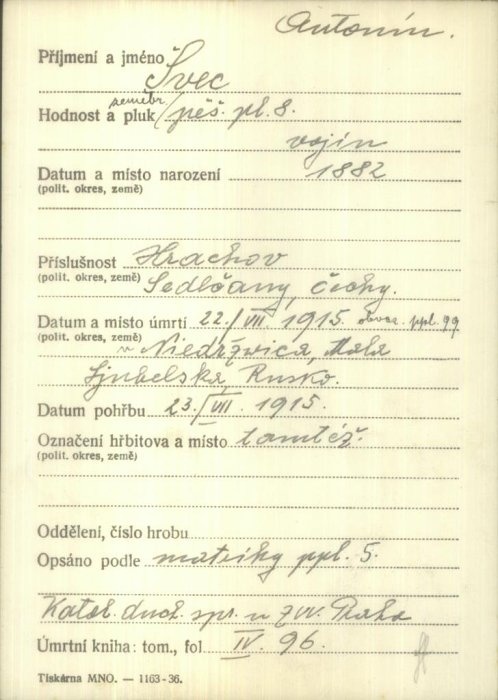 Antonín.
Příjmení a jméno Švec
zeměbr.
Hodnost a pluk pěš. pl. 8.
vojín
Datum a místo narození 1882
(polit. okres, země)
Příslušnost Hrachov
(polit. okres, země) Sedlčany, Čechy.
Datum a místo úmrtí 22./VII. 1915. obvaz. ppl. 99
(polit. okres, země) v Niedržwica, Mala
Ljubelska, Rusko.
Datum pohřbu 23./VII. 1915.
Označení hřbitova a místo tamtéž.
(polit. okres, země)
Oddělení, číslo hrobu
Opsáno podle matriky ppl. 5.
Katol. duch. spr. u ZVV. Praha
Úmrtní kniha: tom., fol IV. 96.
Tiskárna MNO. — 1163-36.